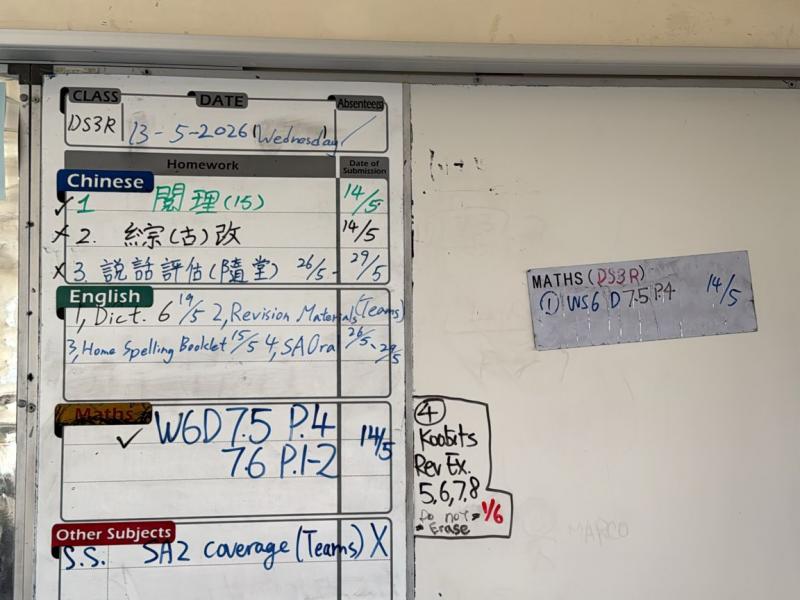 CLASS DATE Absentees
DS3R 13-5-2026 Wednesday /
Homework Date of Submission
Chinese
✓ 1 閱理(15) 14/5
✗ 2. 綜(古)改 14/5
✗ 3. 說話評估(隨堂) 26/5 - 29/5
English
1, Dict. 6 19/5 2, Revision Materials (Teams)
3, Home Spelling Booklet 15/5 4, SA Oral 26/5 - 29/5
Maths
✓ W6D 7.5 P.4 14/5
7.6 P.1-2
Other Subjects
S.S. SA2 coverage (Teams) X
MATHS (DS3R)
① WS6 D 7.5 P.4 14/5
④
Koobits
Rev Ex.
5,6,7,8
Do not Erase 1/6
MARCO